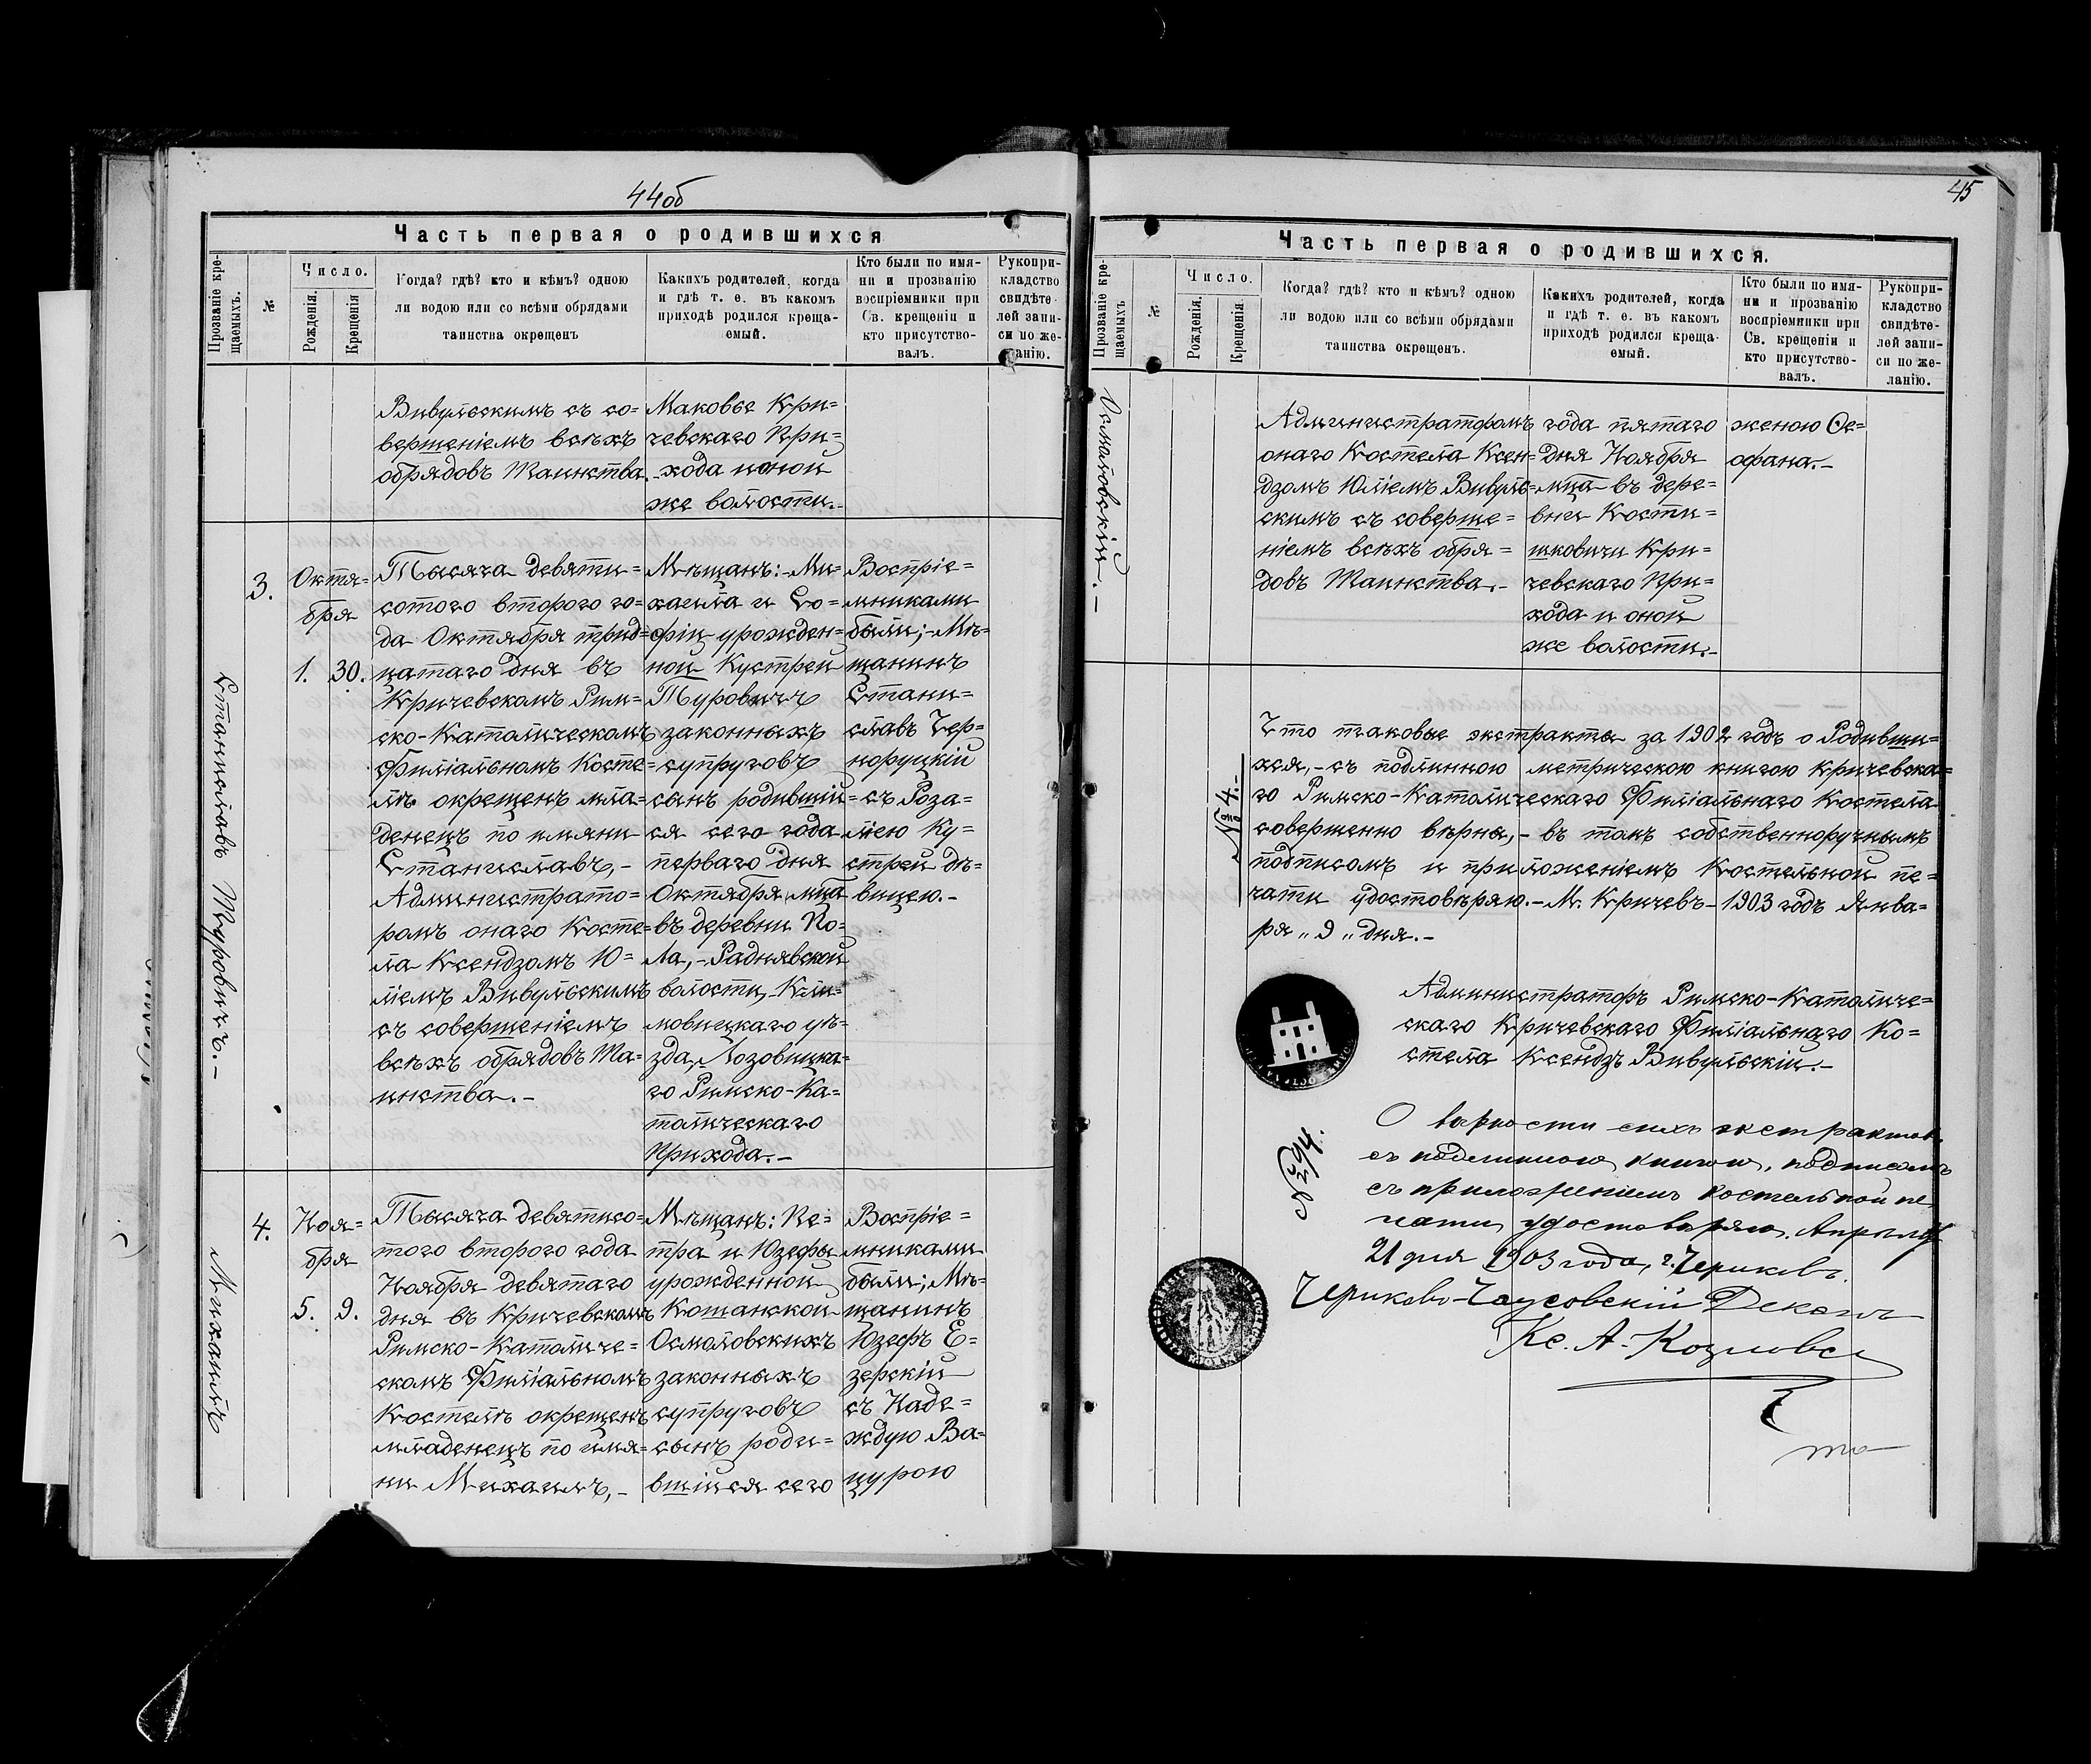 44об
Часть первая о родившихся
Прозваніе кре-
щаемыхъ.
№
Число.
Рожденія.
Крещенія
Когда? гдѣ? кто и кѣмъ? одною
ли водою или со всѣми обрядами
таинства окрещенъ
Какихъ родителей, когда
и гдѣ т. е. въ какомъ
приходѣ родился креща-
емый.
Кто были по имя-
ни и прозванію
воспріемники при
Св. крещеніи и
кто присутство-
валъ.
Рукопри-
кладство
свидѣте-
лей запи-
си по же-
ланію.
Вивульскимъ съ со=
вершеніемъ всѣхъ
обрядовъ Таинства.
Маковье Кри=
чевскаго При=
хода и оной
же волости.-
Станиславъ Туровичъ.-
3.
Октя=
бря
1.
30.
Тысяча девяти=
сотого второго го=
да Октября трид=
цатаго дня въ
Кричевскомъ Рим=
ско-Католическомъ
Филіальномъ Косте=
лѣ окрещенъ мла=
денецъ по имяни
Станиславъ,-
Администрато=
ромъ онаго Косте=
ла Ксендзомъ Ю=
ліемъ Вивульскимъ
съ совершеніемъ
всѣхъ обрядовъ Та=
инства.-
Мѣщанъ:-Ми=
хаила и Со=
фіи урожден=
ной Кустрей
Туровичъ
законныхъ
супруговъ
сынъ родившій=
ся сего года
перваго дня
Октября мца
въ деревни По=
ла,-Раднявской
волости,-Кли=
мовицкаго уѣ=
зда,-Лозовицка=
го Римско-Ка=
толическаго
Прихода.-
Воспріе=
мниками
были;-Мѣ=
щанинъ
Стани=
славъ Чер=
норуцкій
съ Роза=
ліею Ку=
стрей дѣ=
вицею.-
Михаилъ
4.
Ноя=
бря
5.
9.
Тысяча девятисо=
того второго года
Ноября девятаго
дня въ Кричевскомъ
Римско-Католиче=
скомъ Филіальномъ
Костелѣ окрещенъ
младенецъ по имя=
ни Михаилъ,-
Мѣщанъ: Пе=
тра и Юзефы
урожденной
Кошанской
Осмоловскихъ
законныхъ
супруговъ
сынъ роди=
вшійся сего
Воспріе=
мниками
были; Мѣ=
щанинъ
Юзефъ Е=
зерскій
съ Наде=
ждую Ва=
цурою
45
Часть первая о родившихся.
Прозваніе кре-
щаемыхъ
№
Число.
Рожденія.
Крещенія.
Когда? гдѣ? кто и кѣмъ? одною
ли водою или со всѣми обрядами
таинства окрещенъ.
Какихъ родителей, когда
и гдѣ т. е. въ какомъ
приходѣ родился креща-
емый.
Кто были по имя-
ни и прозванію
воспріемники при
Св. крещеніи и
кто присутство-
валъ.
Рукопри-
кладство
свидѣте-
лей запи-
си по же-
ланію.
Осмоловскій.-
Администраторомъ
онаго Костела Ксен=
дзомъ Юліемъ Вивуль=
скимъ съ соверше=
ніемъ всѣхъ обря=
довъ Таинства.-
года пятаго
дня Ноября
мца въ дере=
вни Кости=
шковичи Кри=
чевскаго При=
хода и оной
же волости.-
женою Ѳе=
офана.-
№ 4.-
Что таковые экстракты за 1902 годъ о Родивши=
хся,-съ подлинною метрическою книгою Кричевска=
го Римско-Католическаго Филіальнаго Костела
совершенно вѣрны,-въ томъ собственноручнымъ
подписомъ и приложеніемъ Костельной пе=
чати удостовѣряю.-М. Кричевъ-1903 годъ Янва=
ря „9„ дня.-
Администраторъ Римско-Католиче=
скаго Кричевскаго Филіальнаго Ко=
стела Ксендзъ Вивульскій.-
№ 294.
О вѣрности сихъ экстрактовъ
съ подлинною книгою, подписомъ
съ приложеніемъ костельной пе
чати удостовѣряю. Апрѣля
21 дня 1903 года, г. Чериковъ.
Чериково-Чаусовскій Деканъ
Кс. А. Козловс